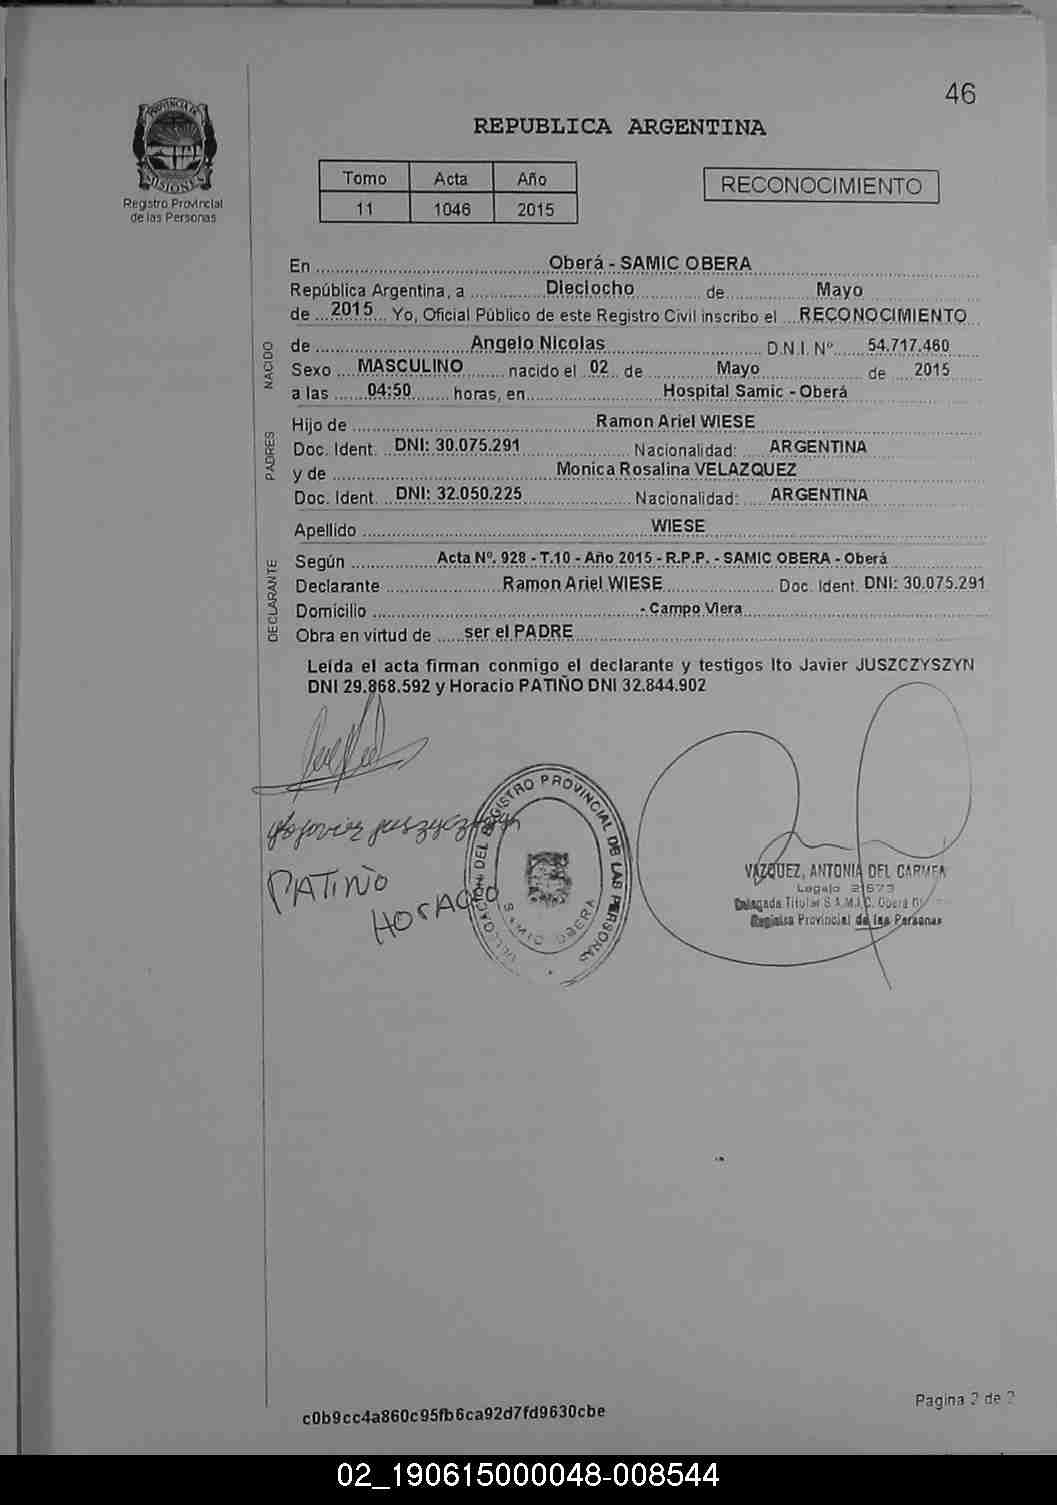 46
PROVINCIA DE
MISIONES
Registro Provincial
de las Personas
REPUBLICA ARGENTINA
Tomo Acta Año
11 1046 2015
RECONOCIMIENTO
En Oberá - SAMIC OBERA
República Argentina, a Dieciocho de Mayo
de 2015 Yo, Oficial Público de este Registro Civil inscribo el RECONOCIMIENTO
NACIDO
de Angelo Nicolas D.N.I. Nº 54.717.460
Sexo MASCULINO nacido el 02 de Mayo de 2015
a las 04:50 horas, en Hospital Samic - Oberá
PADRES
Hijo de Ramon Ariel WIESE
Doc. Ident. DNI: 30.075.291 Nacionalidad: ARGENTINA
y de Monica Rosalina VELAZQUEZ
Doc. Ident. DNI: 32.050.225 Nacionalidad: ARGENTINA
Apellido WIESE
DECLARANTE
Según Acta Nº. 928 - T.10 - Año 2015 - R.P.P. - SAMIC OBERA - Oberá
Declarante Ramon Ariel WIESE Doc. Ident. DNI: 30.075.291
Domicilio - Campo Viera
Obra en virtud de ser el PADRE
Leída el acta firman conmigo el declarante y testigos Ito Javier JUSZCZYSZYN
DNI 29.868.592 y Horacio PATIÑO DNI 32.844.902
PATIÑO
HORACIO
DELEGACION DEL REGISTRO PROVINCIAL DE LAS PERSONAS
SAMIC OBERA
VAZQUEZ, ANTONIA DEL CARMEN
Legajo 2673
Delegada Titular S.A.M.I.C. Oberá
Registro Provincial de las Personas
c0b9cc4a860c95fb6ca92d7fd9630cbe
Pagina 2 de 2
02_190615000048-008544